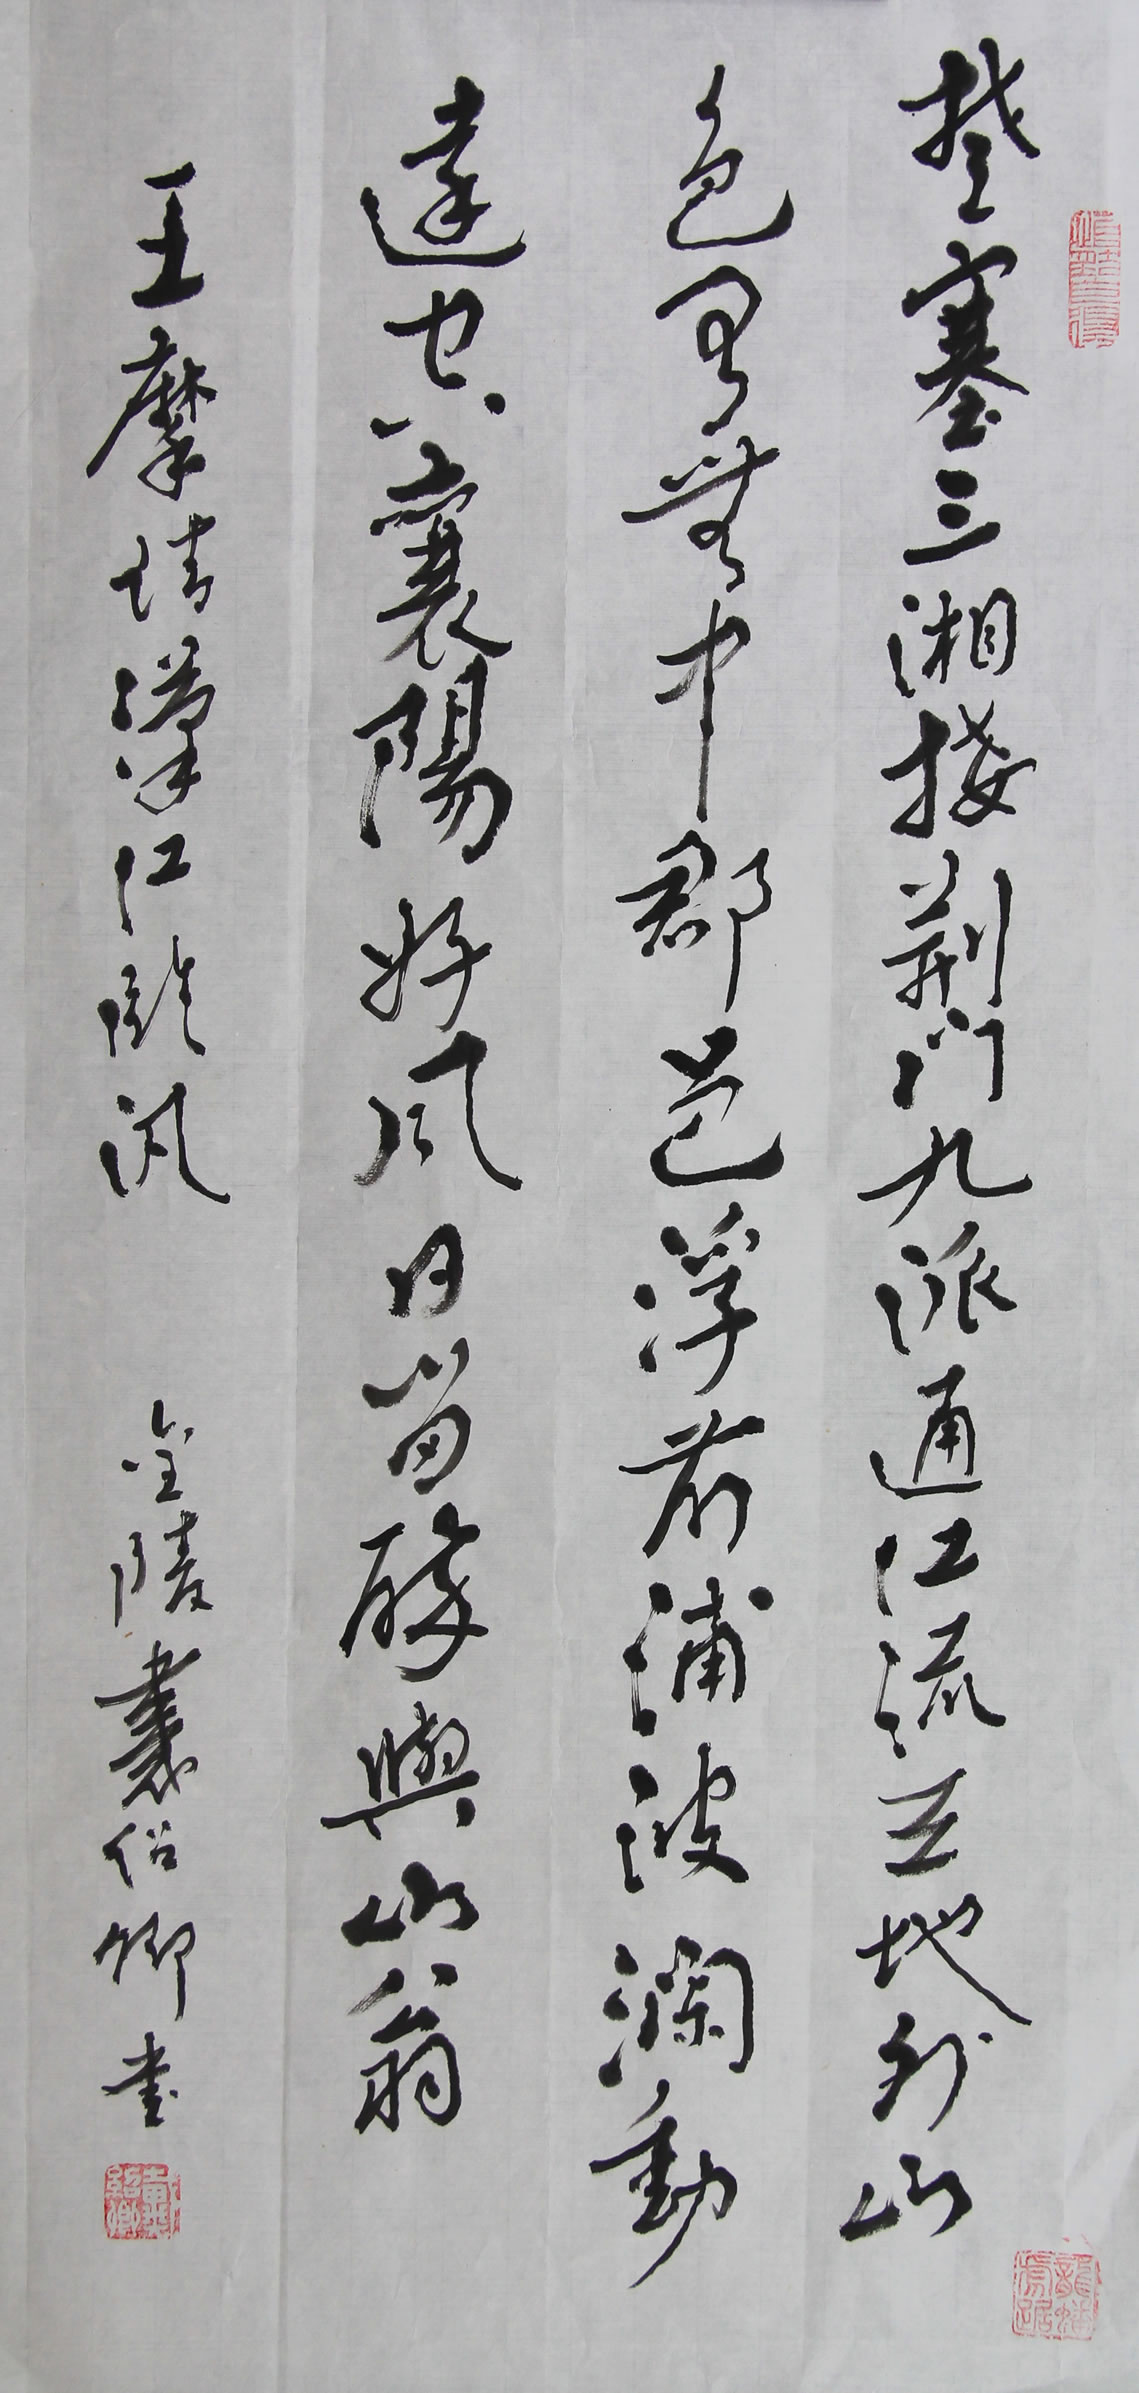 楚塞三湘接荆門九派通江流天地外山
色有無中郡邑浮前浦波瀾動
遠空襄陽好風日留醉與山翁
王摩詰漢江臨汎
金陵戴紹卿書
戴紹卿
龍蟠虎踞